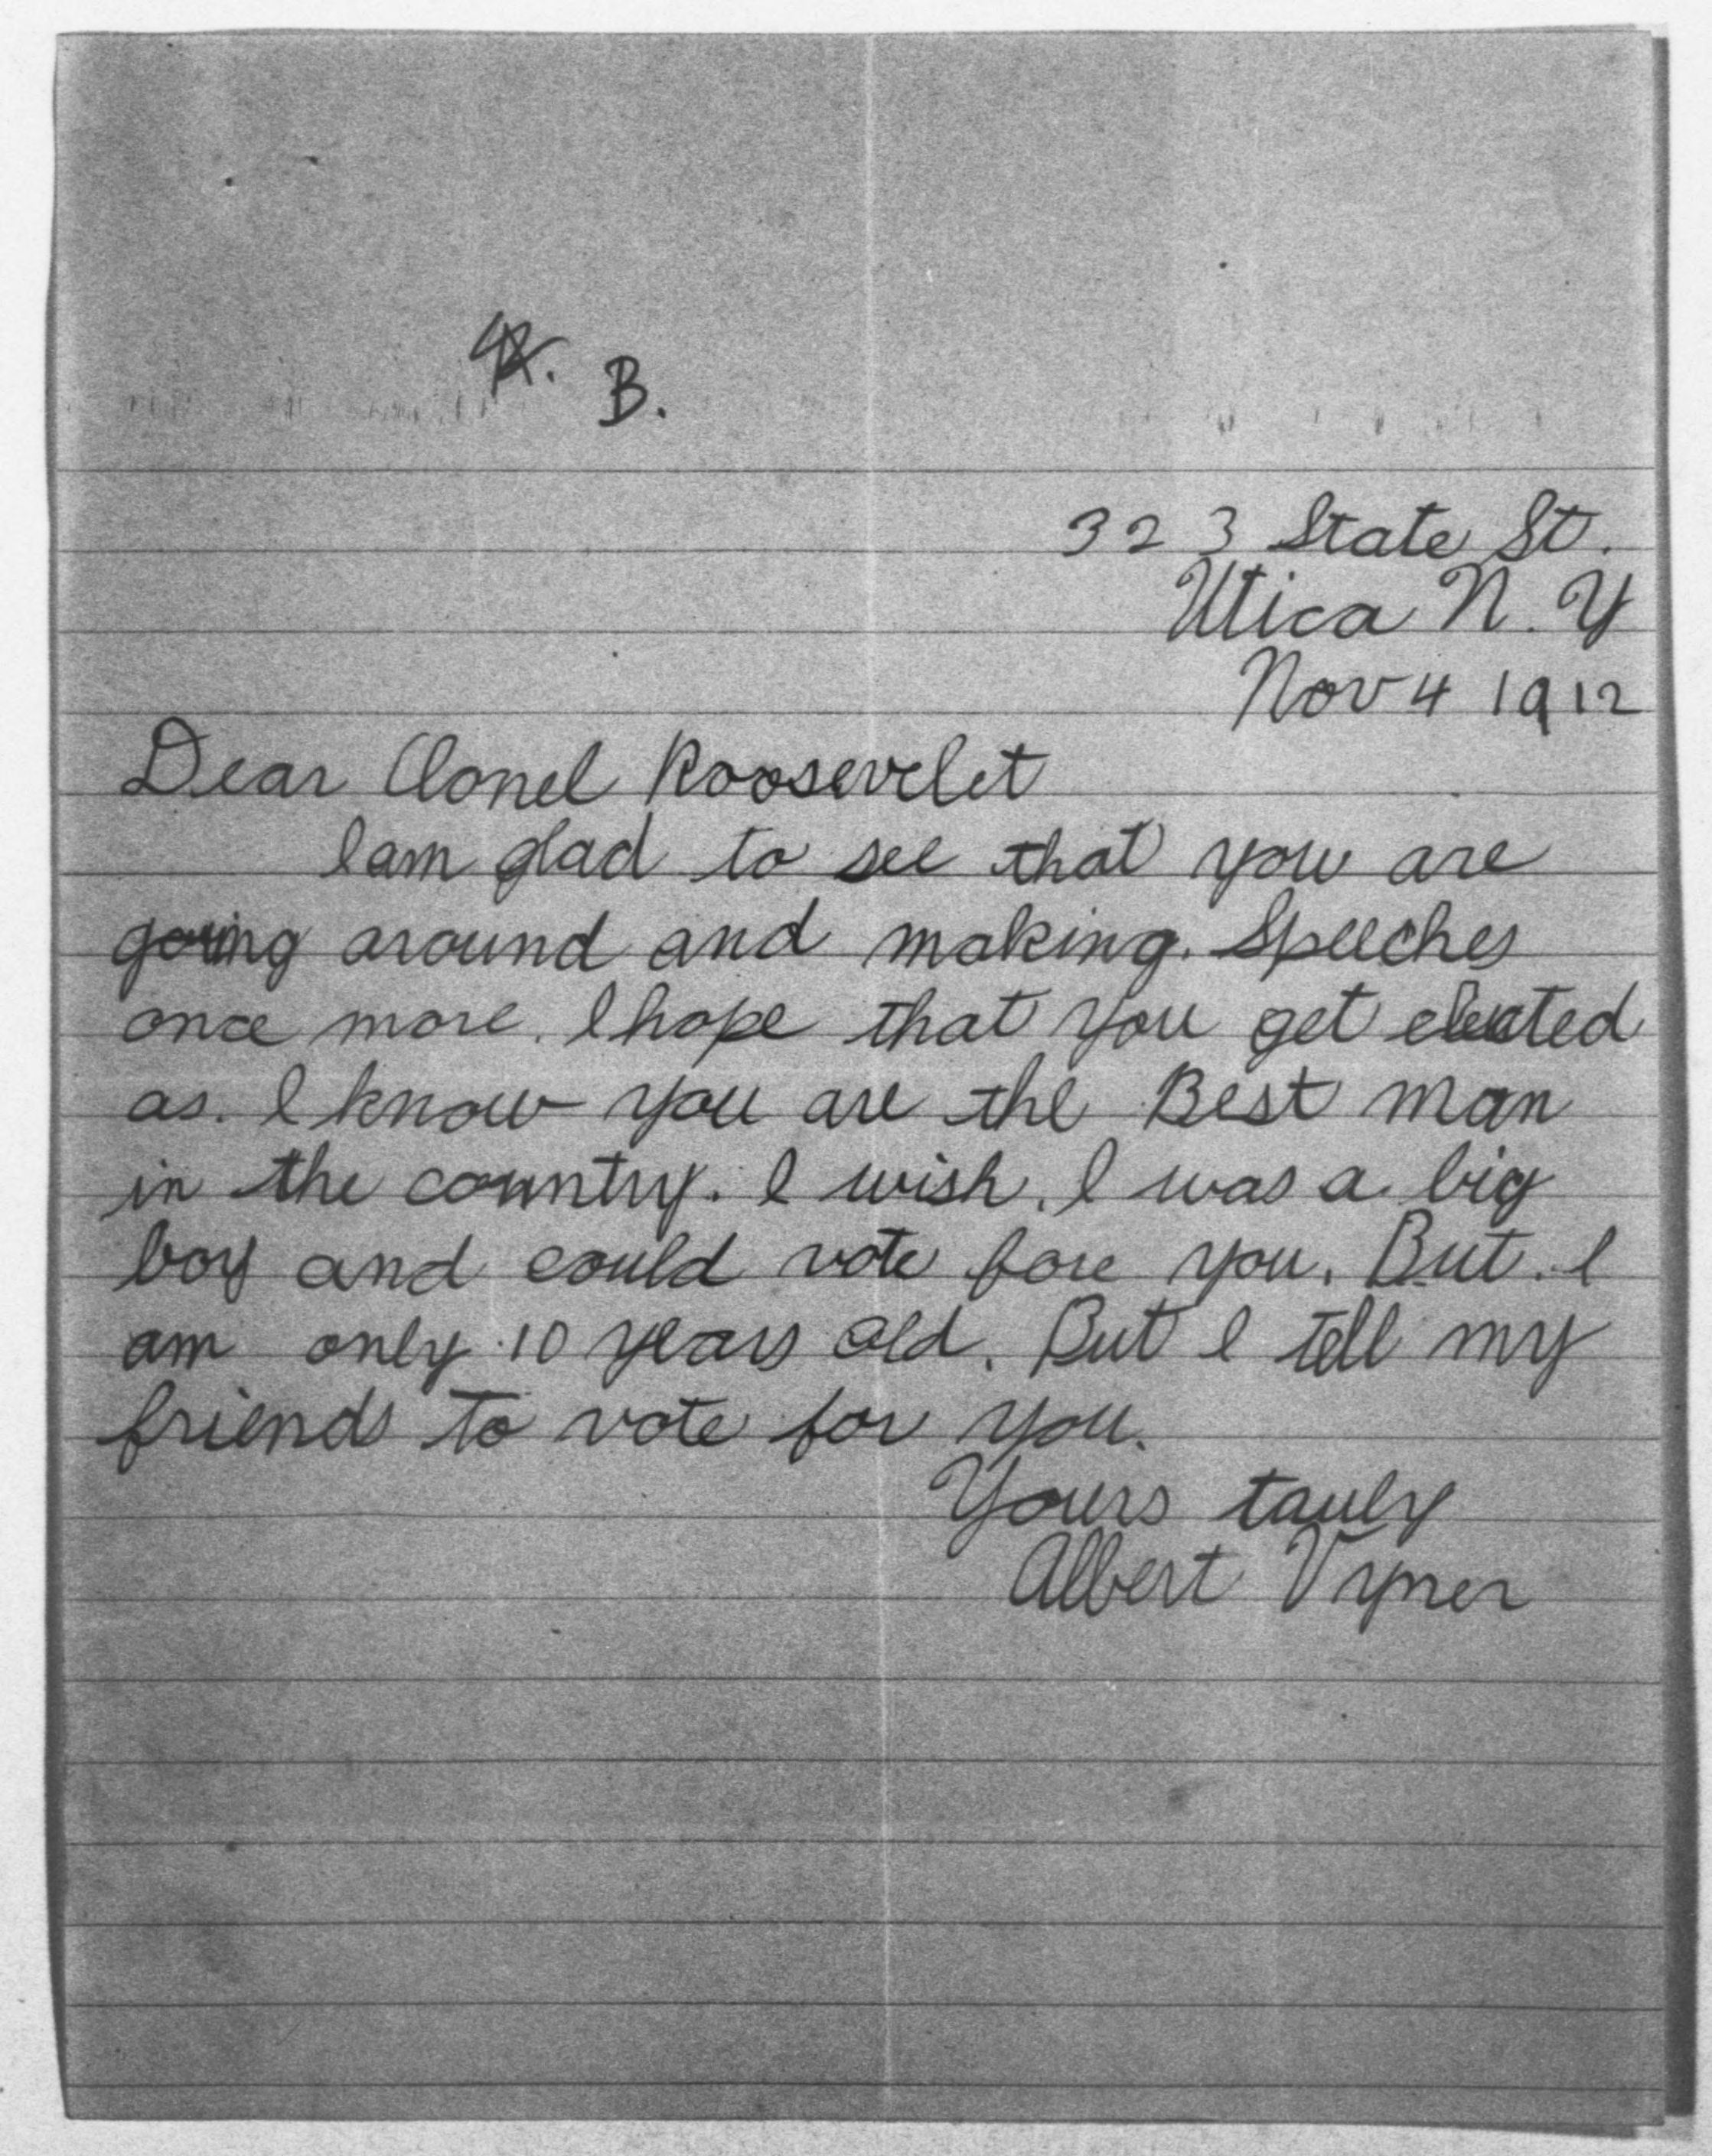 B.
323 State St.
Utica N. Y
Nov 4 1912
Dear Clonel Roosevelet
I am glad to see that you are
going around and making. Speeches
once more. I hope that you get elected
as. I know you are the Best man
in the country. I wish. I was a big
boy and could vote fore you. But. I
am only 10 years old. But I tell my
friends to vote for you.
Yours tauly
Albert Vyner